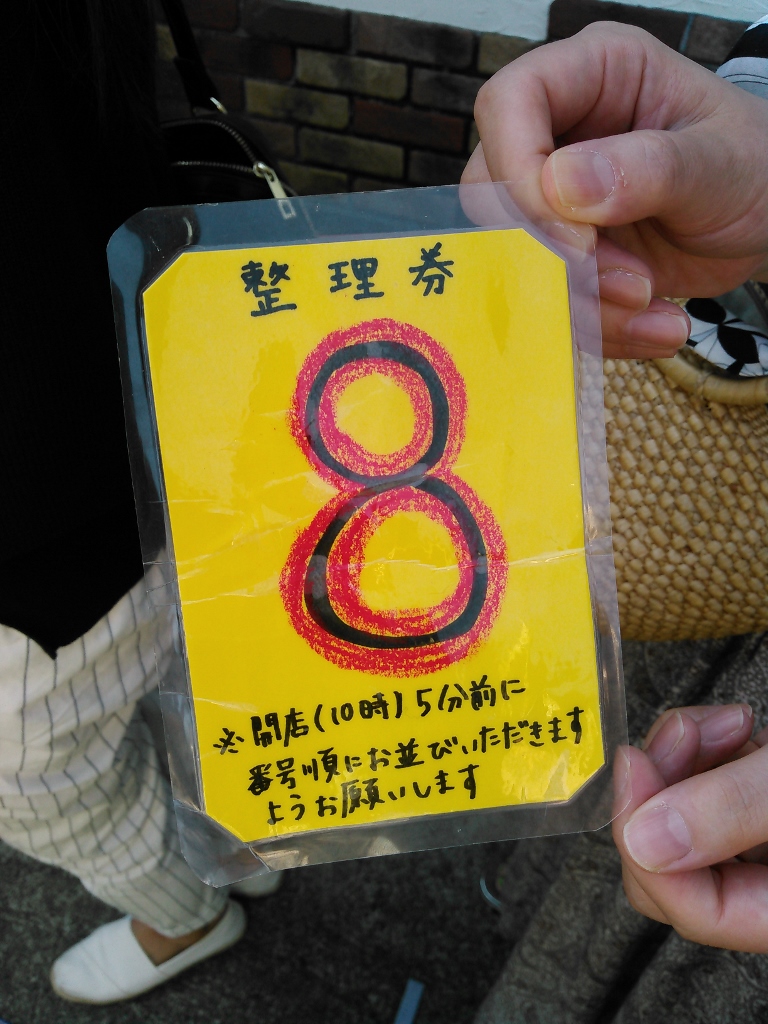 整理券
8
※開店(10時)5分前に
番号順にお並びいただきます
ようお願いします